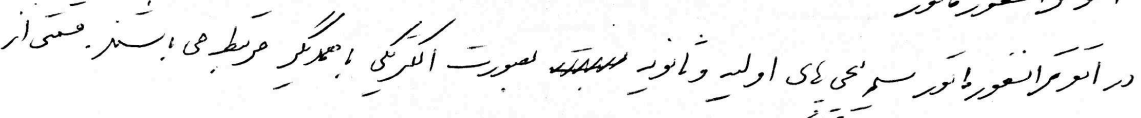 در اتوترانسفورماتور سیم پیچی های اولیه و ثانویه بصورت الکتریکی با همدیگر مرتبط می باشند. قسمتی از